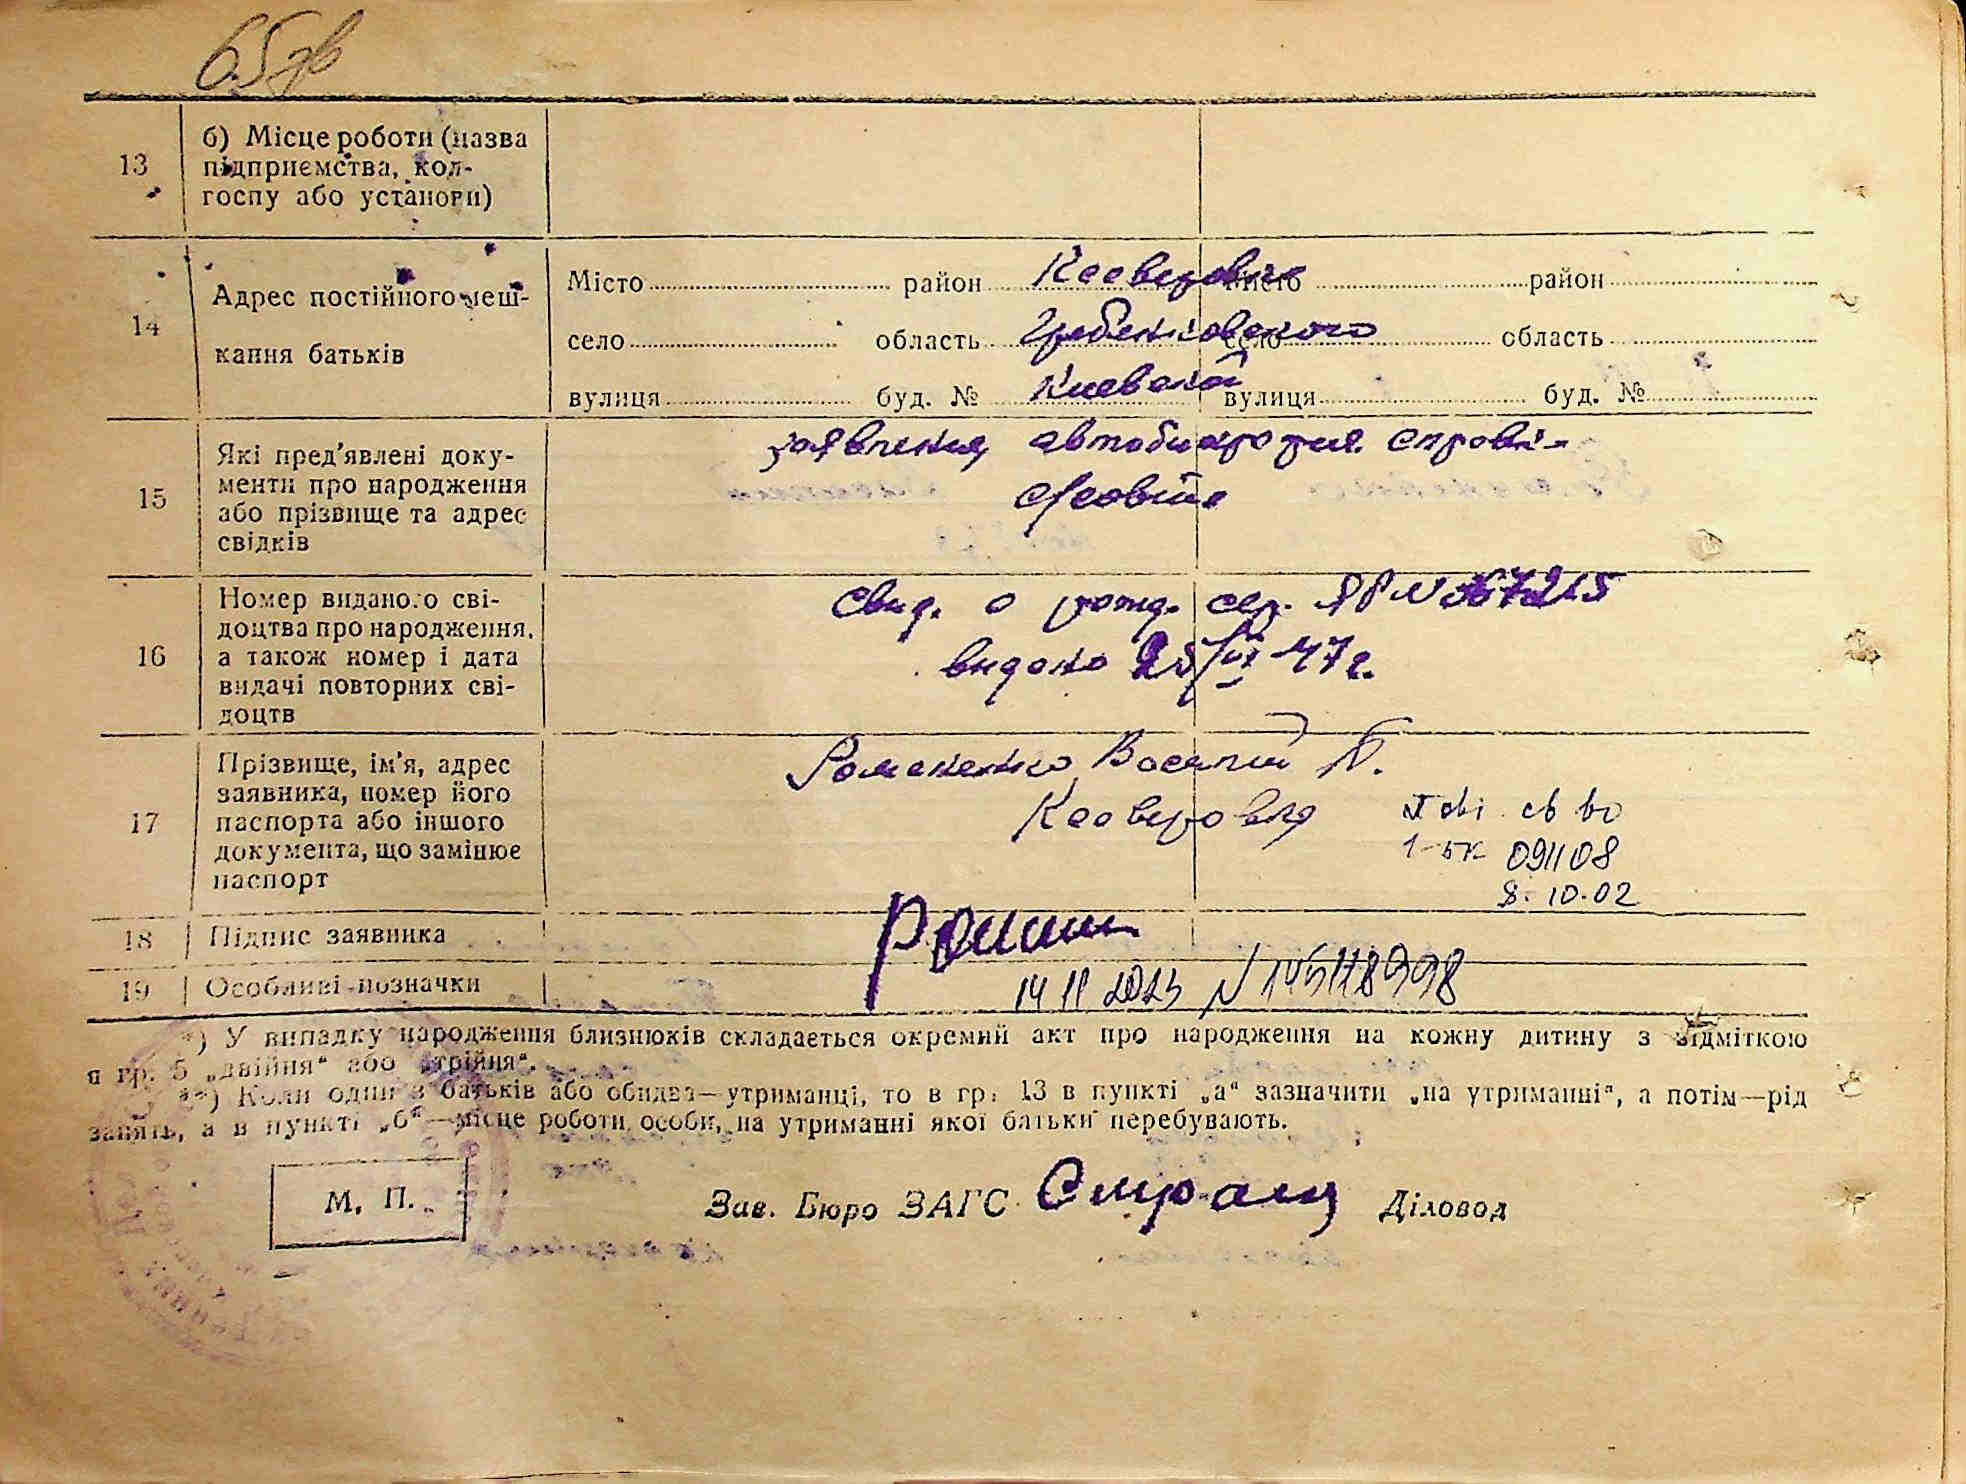 65 зв
13
б) Місце роботи (назва
підприємства, кол-
госпу або установи)
14
Адрес постійного меш-
кання батьків
Місто район Ксаверовка Місто район
село область Гребенковского село область
вулиця буд. № Киевской вулиця буд. №
15
Які пред'явлені доку-
менти про народження
або прізвище та адрес
свідків
заявление, автобиография справка
16
Номер виданого сві-
доцтва про народження,
а також номер і дата
видачі повторних сві-
доцтв
Свид. о рожд. сер. N 367215
видано 25/VI 47 г.
17
Прізвище, ім'я, адрес
заявника, номер його
паспорта або іншого
документа, що замінює
паспорт
Романенко Василий П.
Ксаверовка
св во
1-БК 091108
8.10.02
18
Підпис заявника
19
Особливі позначки
14 11 2023 N 145118998
*) У випадку народження близнюків складається окремий акт про народження на кожну дитину з відміткою
в гр. 5 „двійня“ або „трійня“.
**) Коли один з батьків або обидва—утриманці, то в гр. 13 в пункті „а“ зазначити „на утриманні“, а потім—рід
занять, а в пункті „б“—місце роботи особи, на утриманні якої батьки перебувають.
М. П.
Зав. Бюро ЗАГС Діловод